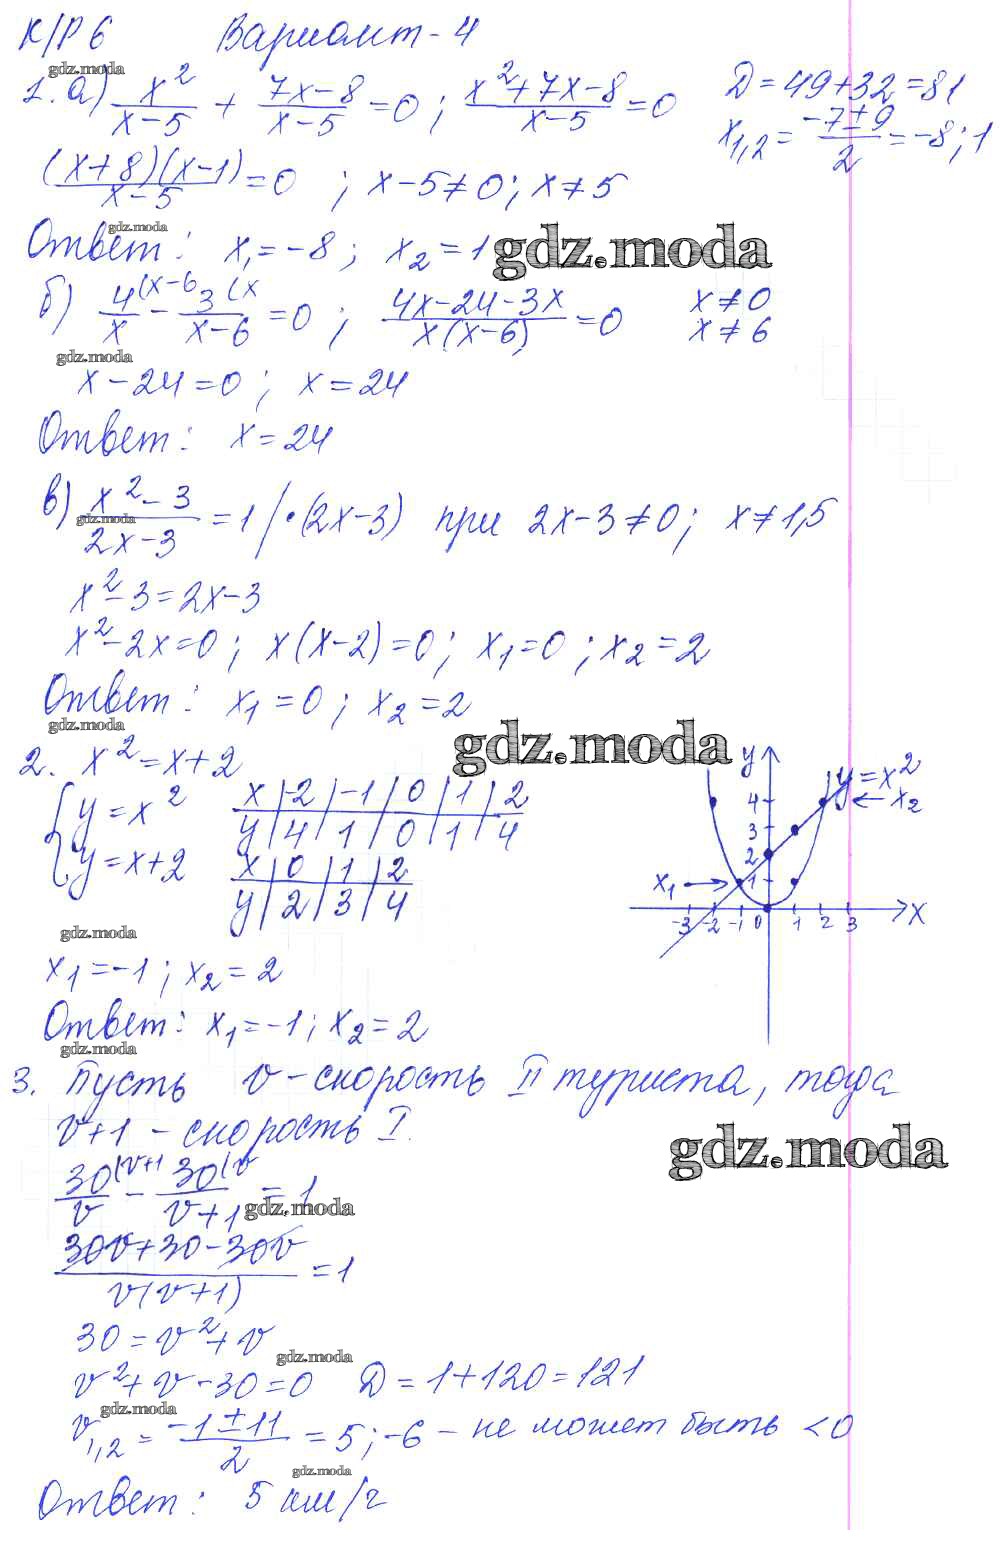 К/Р 6 Вариант-4
gdz.moda
1. а) x²/(x-5) + (7x-8)/(x-5) = 0 ; (x²+7x-8)/(x-5) = 0
D = 49+32 = 81
x₁,₂ = (-7±9)/2 = -8; 1
(x+8)(x-1)/(x-5) = 0 ; x-5≠0; x≠5
gdz.moda
Ответ: x₁ = -8 ; x₂ = 1
gdz.moda
б) 4(x-6/x - 3(x/(x-6) = 0 ; (4x-24-3x)/(x(x-6)) = 0 x≠0
x≠6
gdz.moda
x-24=0; x=24
Ответ: x=24
в) (x²-3)/(2x-3) = 1 /·(2x-3) при 2x-3≠0; x≠1,5
gdz.moda
x²-3=2x-3
x²-2x=0; x(x-2)=0; x₁=0; x₂=2
Ответ: x₁=0; x₂=2
gdz.moda
gdz.moda
2. x²=x+2
{ y=x²
y=x+2
x | -2 | -1 | 0 | 1 | 2
y | 4 | 1 | 0 | 1 | 4
x | 0 | 1 | 2
y | 2 | 3 | 4
y
y=x²
4
x₂
3
2
x₁
1
-3 -2 -1 0 1 2 3 x
gdz.moda
x₁=-1; x₂=2
Ответ: x₁=-1; x₂=2
gdz.moda
3. Пусть v-скорость II туриста, тогда
v+1 - скорость I.
gdz.moda
30(v+1/v - 30(v/(v+1) = 1
gdz.moda
(30v+30-30v)/(v(v+1)) = 1
30=v²+v
gdz.moda
v²+v-30=0 D=1+120=121
gdz.moda
v₁,₂ = (-1±11)/2 = 5; -6 - не может быть <0
gdz.moda
Ответ: 5 км/ч